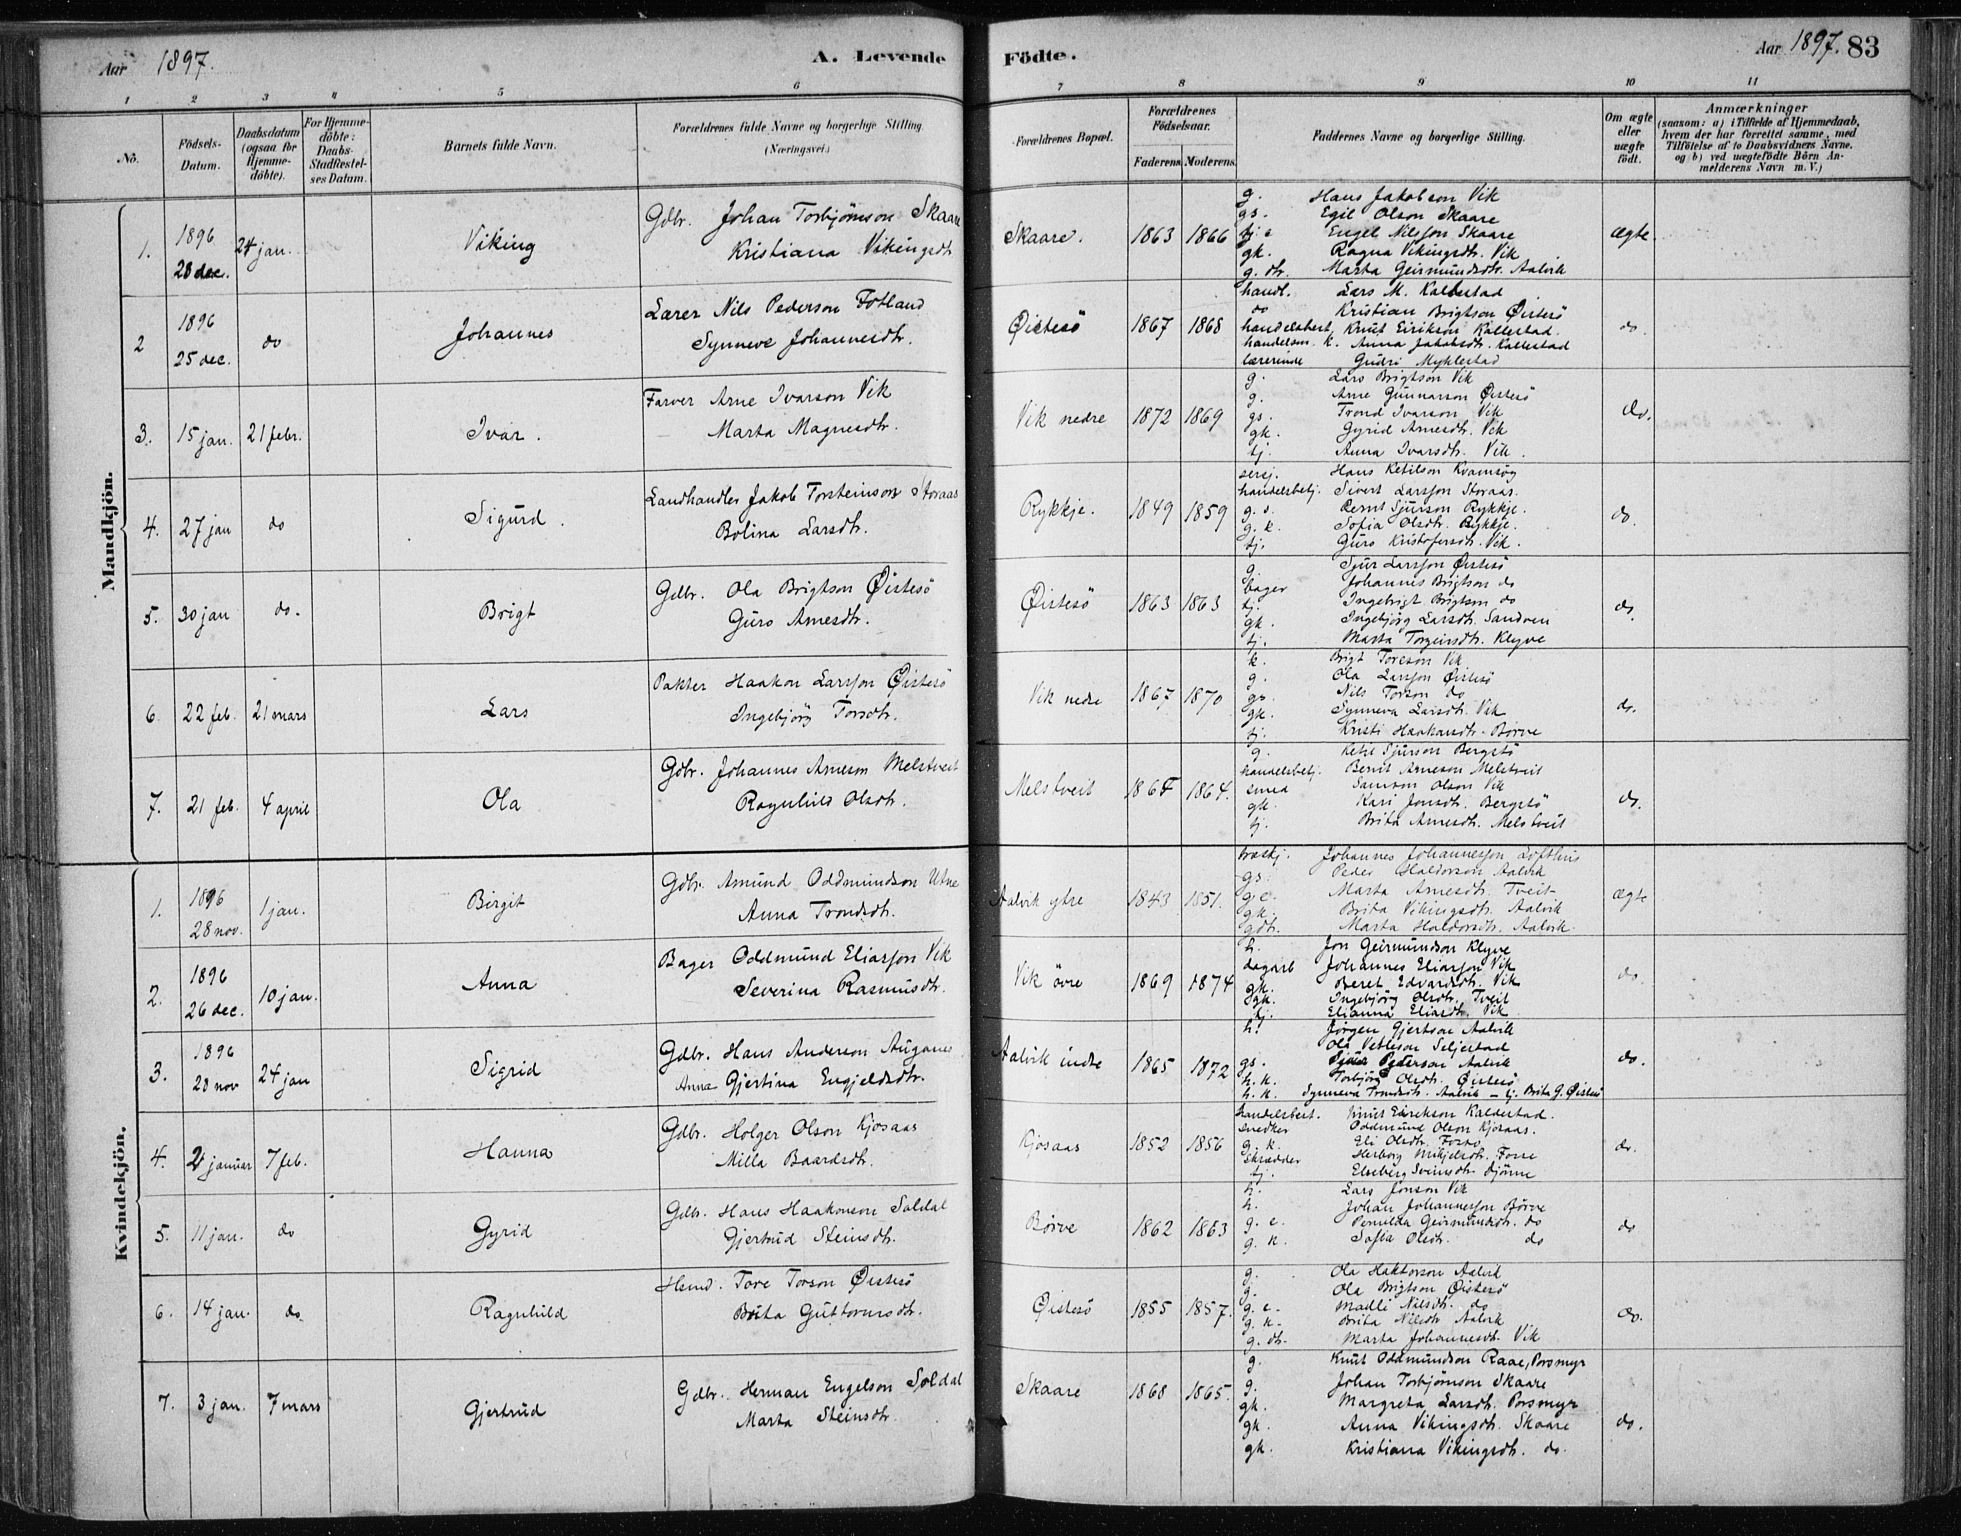 Aar 1897.
A. Levende
Födte.
Aar 1897. 83
1 2 3 4 5 6 7 8 9 10 11
Nô.
Födsels-
Datum.
Daabsdatum
(ogsaa for
Hjemme-
döbte).
For Hjemme-
döbte:
Daabs-
Stadfæstel-
ses Datum.
Barnets fulde Navn.
Forældrenes fulde Navne og borgerlige Stilling.
(Næringsvei.)
Forældrenes Bopæl.
Forældrenes
Födselsaar.
Faderens. Moderens.
Faddernes Navne og borgerlige Stilling.
Om ægte
eller
uægte
födt.
Anmærkninger
(saasom: a) i Tilfælde af Hjemmedaab,
hvem der har forrettet samme, med
Tilföielse af to Daabsvidners Navne.
og b) ved uægtefödte Börn An-
melderens Navn m. V.)
Mandkjön.
1. 1896 28 dec. 24 jan. Viking
Gdbr. Johan Torbjörnson Skaare
Kristiana Vikingsdtr.
Skaare. 1863 1866 ægte.
g. Hans Jakobson Vik
gs. Egil Olson Skaare
Engel Nilsson Skaare
gk. Ragna Vikingsdtr. Vik
g. dtr. Marta Geirmundsdtr. Aalvik
2 1896 25 dec. do Johannes
Lærer Nils Pederson Fotland
Synneve Johannesdtr.
Øistesö 1867 1868 do
handl. Lars M. Kallestad
do Kristian Brigtson Øistesö
handelsbert. Knut Eirikson Kallestad.
handelsm. k. Anna Jakobsdtr. Kallestad
lærerinde Gudri Myklestad
3. 15 jan. 21 febr. Ivar.
Farver Arne Ivarson Vik
Marta Magnesdtr.
Vik nedre 1872 1869 do.
g. Lars Brigtson Vik
g. Arne Gunnarson Øistesö
gs. Trond Ivarson Vik
gk. Gyrid Arnesdtr. Vik
tj. Anna Ivarsdtr. Vik.
4. 27 jan do Sigurd.
Landhandler Jakob Torsteinson Storaas
Bolina Larsdtr.
Rykkje. 1849 1859 do.
sersj. Hans Ketilson Kvamsög
handelsbetj. Sivert Larsson Storaas.
g. s. Bernt Sjurson Rykkje.
g. k. Sofia Olsdtr. Rykkje.
tj. Guro Kristofersdtr. Vik.
5. 30 jan do. Brigt
Gdbr. Ola Brigtson Øistesö
Guro Arnesdtr.
Øistesö 1863 1863 do.
g. Sjur Larsson Øistesö
bager Johannes Brigtson do
tj. Ingebrigt Brigtson do
gk. Ingebjörg Larsdtr. Sandven
tj. Marta Torgeirsdtr. Klyve
6. 22 feb. 21 mars Lars
Pakter Haakon Larsson Øistesö
Ingebjörg Torsdtr.
Vik nedre 1867 1870 do.
k. Brigt Toreson Vik
g. Ola Larsson Øistesö
gs. Nils Torson do
gk. Synneva Larsdtr. Vik
tj. Kristi Haakonsdtr. Börve
7. 21 feb. 4 april Ola
Gdbr. Johannes Arneson Melstveit
Ragnhild Olsdtr.
Melstveit 1864. do.
g. Ketil Sjurson Bergstö
handelsbetj. Bernt Arneson Melstveit
smed Samson Olson Vik
gk. Kari Jonsdtr. Bergstö
tj. Brita Arnesdtr. Melstveit
Kvindekjön.
1. 1896 28 nov. 1 jan. Birgit
Gdbr. Amund Oddmundson Utne
Anna Trondsdtr.
Aalvik ytre 1843 1851. ægte
Johannes Johannesson Lofthus
gs. Peder Haldorson Aalvik
Marta Arnesdtr. Tveit
gk. Brita Vikingsdtr. Aalvik
gdtr. Marta Haldorsdtr. Aalvik.
2. 1896 26 dec. 10 jan. Anna
Bager Oddmund Eliasson Vik
Severina Rasmusdtr.
Vik övre 1869 1874 do.
h. Jon Geirmundson Klyve
dagarb Johannes Eliasson Vik
gk. Beret Edvardsdtr. Vik
gk. Ingebjörg Olsdtr. Tveit
tj. Elianna Eliasdtr. Vik
3. 1896 28 nov 24 jan Sigrid
Gdbr. Hans Anderson Auganes
Anna Gjertina Engjeldsdtr.
Aalvik indre 1865 1872 do.
h. Jörgen Gjertson Aalvik
Ola Vetleson Seljestad
gs. Pederson Aalvik
h. k. Torbjörg Olsdtr. Øistesö
h. k. Synneva Trondsdtr. Aalvik – tj. Brita G. Øistesö
4. 2 januar 7 feb. Hanna
Gdbr. Holger Olson Kjosaas
Milla Baardsdtr.
Kjosaas 1852 1856 do.
handelsbest. Knut Eirekson Kaldestad.
snedker Oddmund Olson Kjosaas.
g. k. Eli Olsdtr. Fosse
skrædder Herborg Mikjelsdtr. Fosse
tj. Elseberg Sveinsdtr. Bjönne
5. 11 jan. do Gyrid
Gdbr. Hans Haakonson Soldal
Gjertrud Steinsdtr.
Börve 1862 1863 do
h. Lars Jonson Vik
h. Johan Johannesson Börve
g. e. Pernilla Geirmundsdtr. do
g. k. Sofia Olsdtr. do
6. 14 jan. do Ragnhild
Hsmd. Tore Torson Øistesö
Brita Guttormsdtr.
Øistesö 1855 1857. do.
g. Ola Haktorson Aalvik
g. Ola Brigtson Øistesö
g. e. Madli Nilsdtr. do
g. k. Brita Nilsdtr. Aalvik
g. dtr. Marta Johannesdtr. Vik
7. 3 jan. 7 mars Gjertrud
Gdbr. Herman Engelson Soldal
Marta Steinsdtr.
Skaare 1868 1865. do.
g. Knut Oddmundson Raae, Porsmyr
g. Johan Torbjörnson Skaare
gk. Margreta Larsdtr. Porsmyr
gk. Anna Vikingsdtr. Skaare
gk. Kristiana Vikingsdtr. do.